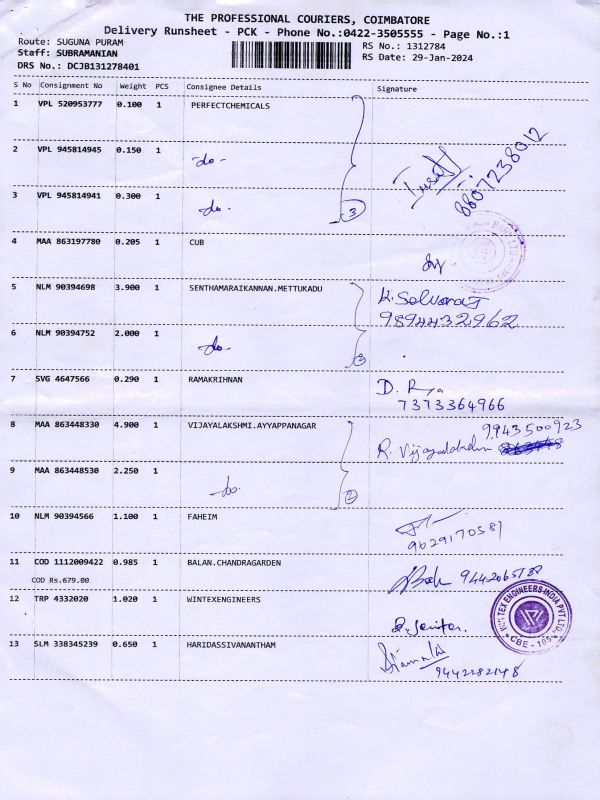 THE PROFESSIONAL COURIERS, COIMBATORE
Delivery Runsheet - PCK - Phone No.:0422-3505555 - Page No.:1
Route: SUGUNA PURAM RS No.: 1312784
Staff: SUBRAMANIAN RS Date: 29-Jan-2024
DRS No.: DCJB131278401
S No Consignment No Weight PCS Consignee Details Signature
1 VPL 520953777 0.100 1 PERFECTCHEMICALS
2 VPL 945814945 0.150 1 -do-
8807238012
3 VPL 945814941 0.300 1 do. 3
4 MAA 863197780 0.205 1 CUB
5 NLM 90394698 3.900 1 SENTHAMARAIKANNAN.METTUKADU K. Selvaraj
9894432962
6 NLM 90394752 2.000 1 do
7 SVG 4647566 0.290 1 RAMAKRIHNAN D. Rya
7373364966
8 MAA 863448330 4.900 1 VIJAYALAKSHMI.AYYAPPANAGAR 9943500923
R. Vijayalakshmi
9 MAA 863448530 2.250 1 -do. 2
10 NLM 90394566 1.100 1 FAHEIM
9629170581
11 COD 1112009422 0.985 1 BALAN.CHANDRAGARDEN
COD Rs.679.00
12 TRP 4332020 1.020 1 WINTEXENGINEERS
WIN TEX ENGINEERS INDIA PVT LTD.
CBE - 105
13 SLM 338345239 0.650 1 HARIDASSIVANANTHAM
9442282148